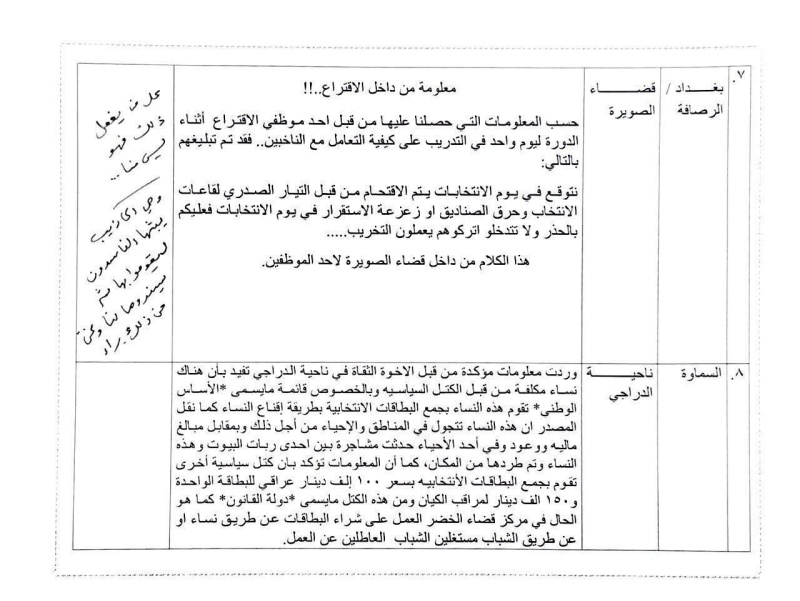 ٧.
بغـــداد / الرصافة
قضـــــاء الصويرة
معلومة من داخل الاقتراع..!!
حسب المعلومات التي حصلنا عليها من قبل احد موظفي الاقتراع أثناء
الدورة ليوم واحد في التدريب على كيفية التعامل مع الناخبين.. فقد تم تبليغهم
بالتالي:
نتوقع في يوم الانتخابات يتم الاقتحام من قبل التيار الصدري لقاعات
الانتخاب وحرق الصناديق او زعزعة الاستقرار في يوم الانتخابات فعليكم
بالحذر ولا تتدخلو اتركوهم يعملون التخريب.....
هذا الكلام من داخل قضاء الصويرة لاحد الموظفين.
من يفعل
ذلك فهو
ليس منا ...
يبثها الفاسدون
ليقوموا بها ثم
٨.
السماوة
ناحيـــــــة الدراجي
وردت معلومات مؤكدة من قبل الاخوة الثقاة في ناحية الدراجي تفيد بأن هناك
نساء مكلفة من قبل الكتل السياسيه وبالخصوص قائمة مايسمى *الأساس
الوطني* تقوم هذه النساء بجمع البطاقات الانتخابية بطريقة إقناع النساء كما نقل
المصدر ان هذه النساء تتجول في المناطق والإحياء من أجل ذلك وبمقابل مبالغ
ماليه ووعود وفي أحد الأحياء حدثت مشاجرة بين احدى ربات البيوت وهذه
النساء وتم طردها من المكان، كما أن المعلومات تؤكد بان كتل سياسية أخرى
تقوم بجمع البطاقات الأنتخابيه بسعر ١٠٠ إلف دينار عراقي للبطاقة الواحدة
و١٥٠ الف دينار لمراقب الكيان ومن هذه الكتل مايسمى *دولة القانون* كما هو
الحال في مركز قضاء الخضر العمل على شراء البطاقات عن طريق نساء او
عن طريق الشباب مستغلين الشباب العاطلين عن العمل.